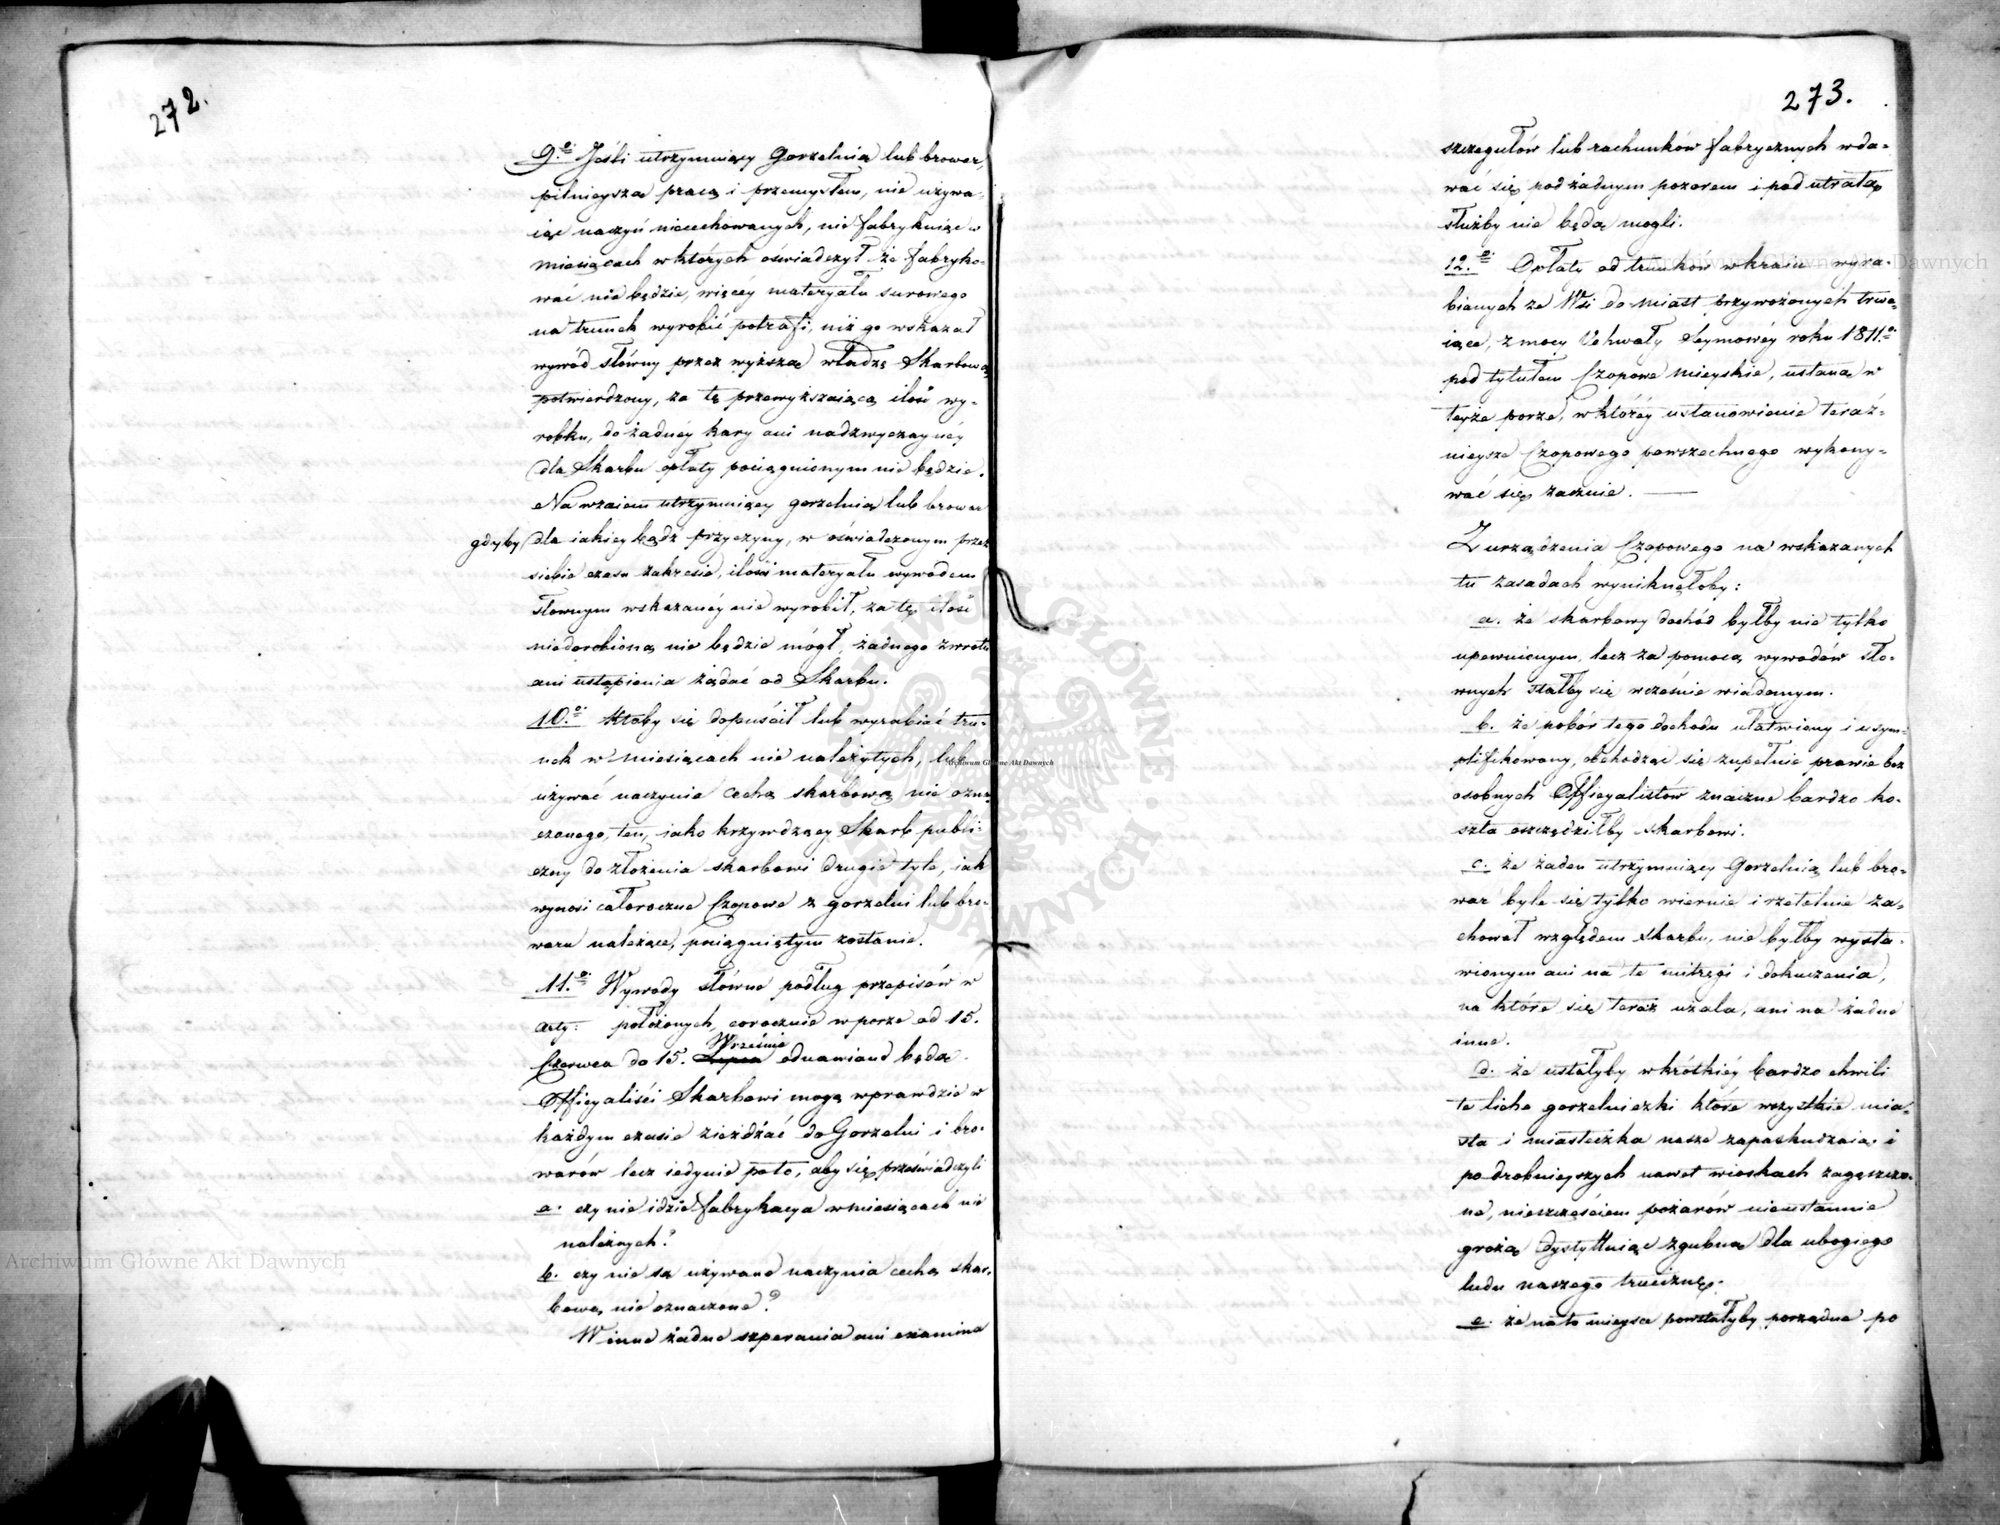 272.
9.o Jeśli utrzymuiący Gorzelnią lub browar,
pilnieyszą pracą i przemysłem, nie używa-
iąc naczyń niecechowanych, nie fabrykuiąc w
miesiącach w których oświadczył że fabryko-
wać nie będzie, więcey materyału surowego
na trunek wyrobić potrafi, niż go wskazał
wywód słówny przez wyższą władzę Skarbową
potwierdzony, za tę przewyższaiącą ilość wy-
robku, do żadnéy kary ani nadzwyczayney
dla Skarbu opłaty pociągnionym nie będzie.
Na wzaiem utrzymuiący gorzelnią lub browar
gdyby dla iakiey bądź przyczyny, w oświadczonym przez
siebie czasu zakresie, ilości materyału wywodem
słownym wskazanéy nie wyrobił, za tę ilość
niedorobioną nie będzie mógł, żadnego zwrotu
ani ustąpienia żądać od Skarbu.
10.o Ktoby się dopuścił lub wyrabiać tru-
nek w miesiącach nie należytych, lub
używać naczynie cechą skarbową nie ozna-
czonego, ten, iako krzywdzący Skarb publi-
czny do złożenia skarbowi drugie tyle, iak
wynosi całoroczne Czopowe z gorzelni lub bro-
waru należące, pociągniętym zostanie.
11.o Wywody słówne podług przepisów w
arty: położonych, corocznie w porze od 15.
Września
Czerwca do 15. Lipca odnawiane będą.
Officyaliści Skarbowi mogą wprawdzie w
każdym czasie zieżdżać do Gorzelni i bro-
warów lecz iedynie po to, aby się przeświadczyli
a. czy nie idzie fabrykacya w miesiącach nie
należnych?
b. czy nie są używane naczynia cechą skar-
bową nie oznaczone?
W inne żadne szperania ani examina
273.
szczegułów lub rachunków fabrycznych wda-
wać się pod żadnym pozorem i pod utratą
służby nie będą mogli.
12.o Opłaty od trunków w kraiu wyra-
bianych ze Wsi do miast przywożonych trwa-
iące, z mocy Uchwały Seymowéy roku 1811.o
pod tytułem Czopowe Mieyskie, ustaną w
teyże porze, w któréy ustanowienie teraź-
nieysze Czopowego powszechnego wykony-
wać się zacznie.
Z urządzenia Czopowego na wskazanych
tu zasadach wyniknęłoby:
a. że skarbowy dochód byłby nie tylko
upewnionym, lecz za pomocą wywodów sło-
wnych stałby się wcześnie wiadomym.
b. że pobór tego dochodu ułatwiony i usym-
plifikowany, obchodząc się zupełnie prawie bez
osobnych Officyalistów znaczne bardzo ko-
szta oszczędziłby skarbowi.
c. że żaden utrzymuiący Gorzelnią lub bro-
war byle się tylko wiernie i rzetelnie za-
chował względem skarbu, nie byłby wysta-
wionym ani na te mitręgi i dokuczania,
na które się teraz użala, ani na żadne
inne.
d. że ustałyby w krótkiéy bardzo chwili
te liche gorzelniczki które wszystkie mia-
sta i miasteczka nasze zapaskudzaią, i
po drobnieyszych nawet wioskach zagęszczo-
ne, nieszczęściem pożarów nieustannie
grożą dystylluiąc zgubną dla ubogiego
ludu naszego truciznę.
e. że na to mieysce powstałyby porządne po
Archiwum Główne Akt Dawnych
Archiwum Główne Akt Dawnych
Archiwum Główne Akt Dawnych
ARCHIWUM GŁÓWNE AKT DAWNYCH